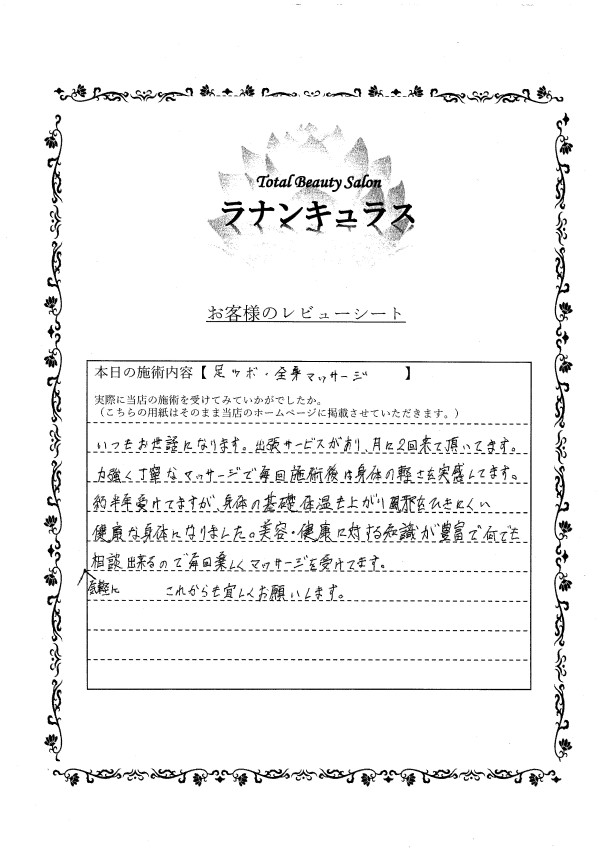 Total Beauty Salon
ラナンキュラス
お客様のレビューシート
本日の施術内容【 足ツボ・全身マッサージ 】
実際に当店の施術を受けてみていかがでしたか。
(こちらの用紙はそのまま当店のホームページに掲載させていただきます。)
いつもお世話になります。出張サービスがあり、月に2回来て頂いてます。
力強く丁寧なマッサージで毎回施術後は身体の軽さを実感してます。
約半年受けてますが、身体の基礎体温も上がり風邪をひきにくい
健康な身体になりました。美容・健康に対する知識が豊富で何でも
気軽に相談出来るので毎回楽しくマッサージを受けてます。
これからも宜しくお願いします。